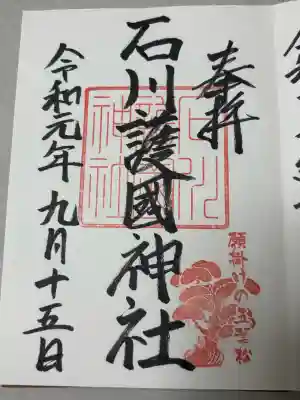 奉拝
石川護國神社
令和元年九月十五日
石川護國神社